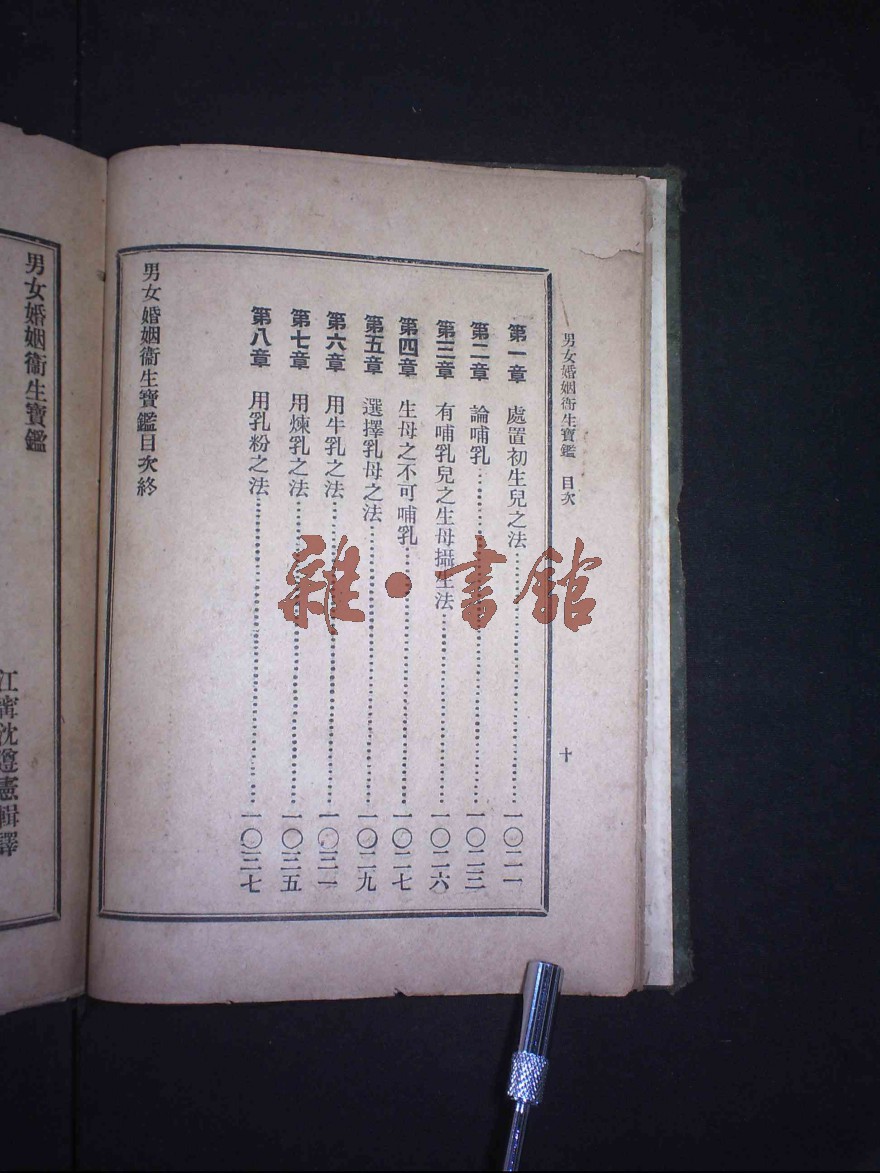 男女婚姻衞生寶鑑 目次
十
第一章 處置初生兒之法……一〇二一
第二章 論哺乳……一〇二三
第三章 有哺乳兒之生母攝生法……一〇二六
第四章 生母之不可哺乳……一〇二七
第五章 選擇乳母之法……一〇二九
第六章 用牛乳之法……一〇三一
第七章 用煉乳之法……一〇三五
第八章 用乳粉之法……一〇三七
男女婚姻衞生寶鑑目次終
男女婚姻衞生寶鑑
江寗沈遵憲輯譯
雜·書館